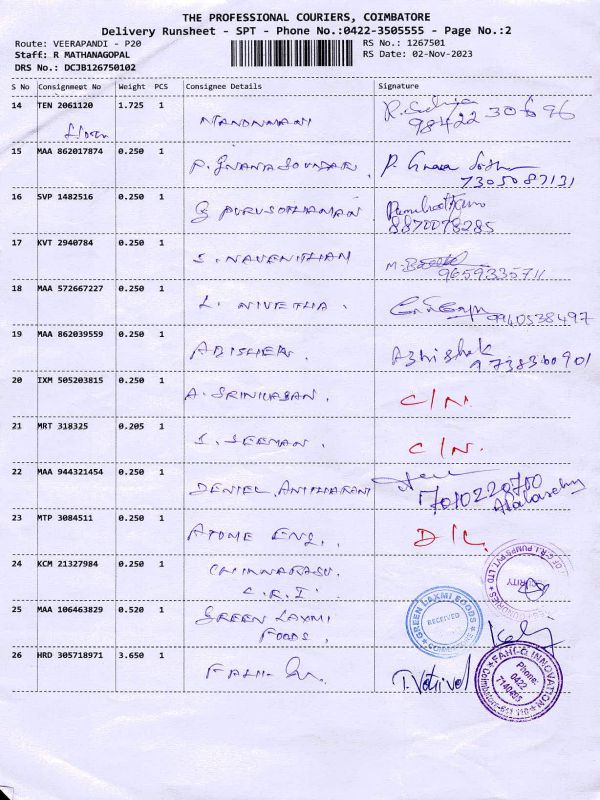 THE PROFESSIONAL COURIERS, COIMBATORE
Delivery Runsheet - SPT - Phone No.:0422-3505555 - Page No.:2
Route: VEERAPANDI - P20 RS No.: 1267501
Staff: R MATHANAGOPAL RS Date: 02-Nov-2023
DRS No.: DCJB126750102
S No Consignment No Weight PCS Consignee Details Signature
14 TEN 2061120 1.725 1
98422 30696
15 MAA 862017874 0.250 1 P. GNANA SOUNDAR.
7305087131
16 SVP 1482516 0.250 1 G PURUSOTHAMAN
8870078285
17 KVT 2940784 0.250 1 S. NAVENITHAM
9659335711
18 MAA 572667227 0.250 1 L. NIVETHA.
9940538497
19 MAA 862039559 0.250 1 ABISHEK. Abhishek
9738360901
20 IXM 505203815 0.250 1 A. SRINIVASAN. C/N.
21 MRT 318325 0.205 1 S. SEEMAN. C/N.
22 MAA 944321454 0.250 1 DENIEL
7010220700
23 MTP 3084511 0.250 1 ATOME ENG. D/L.
24 KCM 21327984 0.250 1 CHINNARASU.
C.R.I.
25 MAA 106463829 0.520 1 GREEN LAXMI
FOODS.
GREEN LAXMI FOODS
RECEIVED
COIMBATORE
26 HRD 305718971 3.650 1
FAHI-G INNOVATION
Phone:
0422
7140495